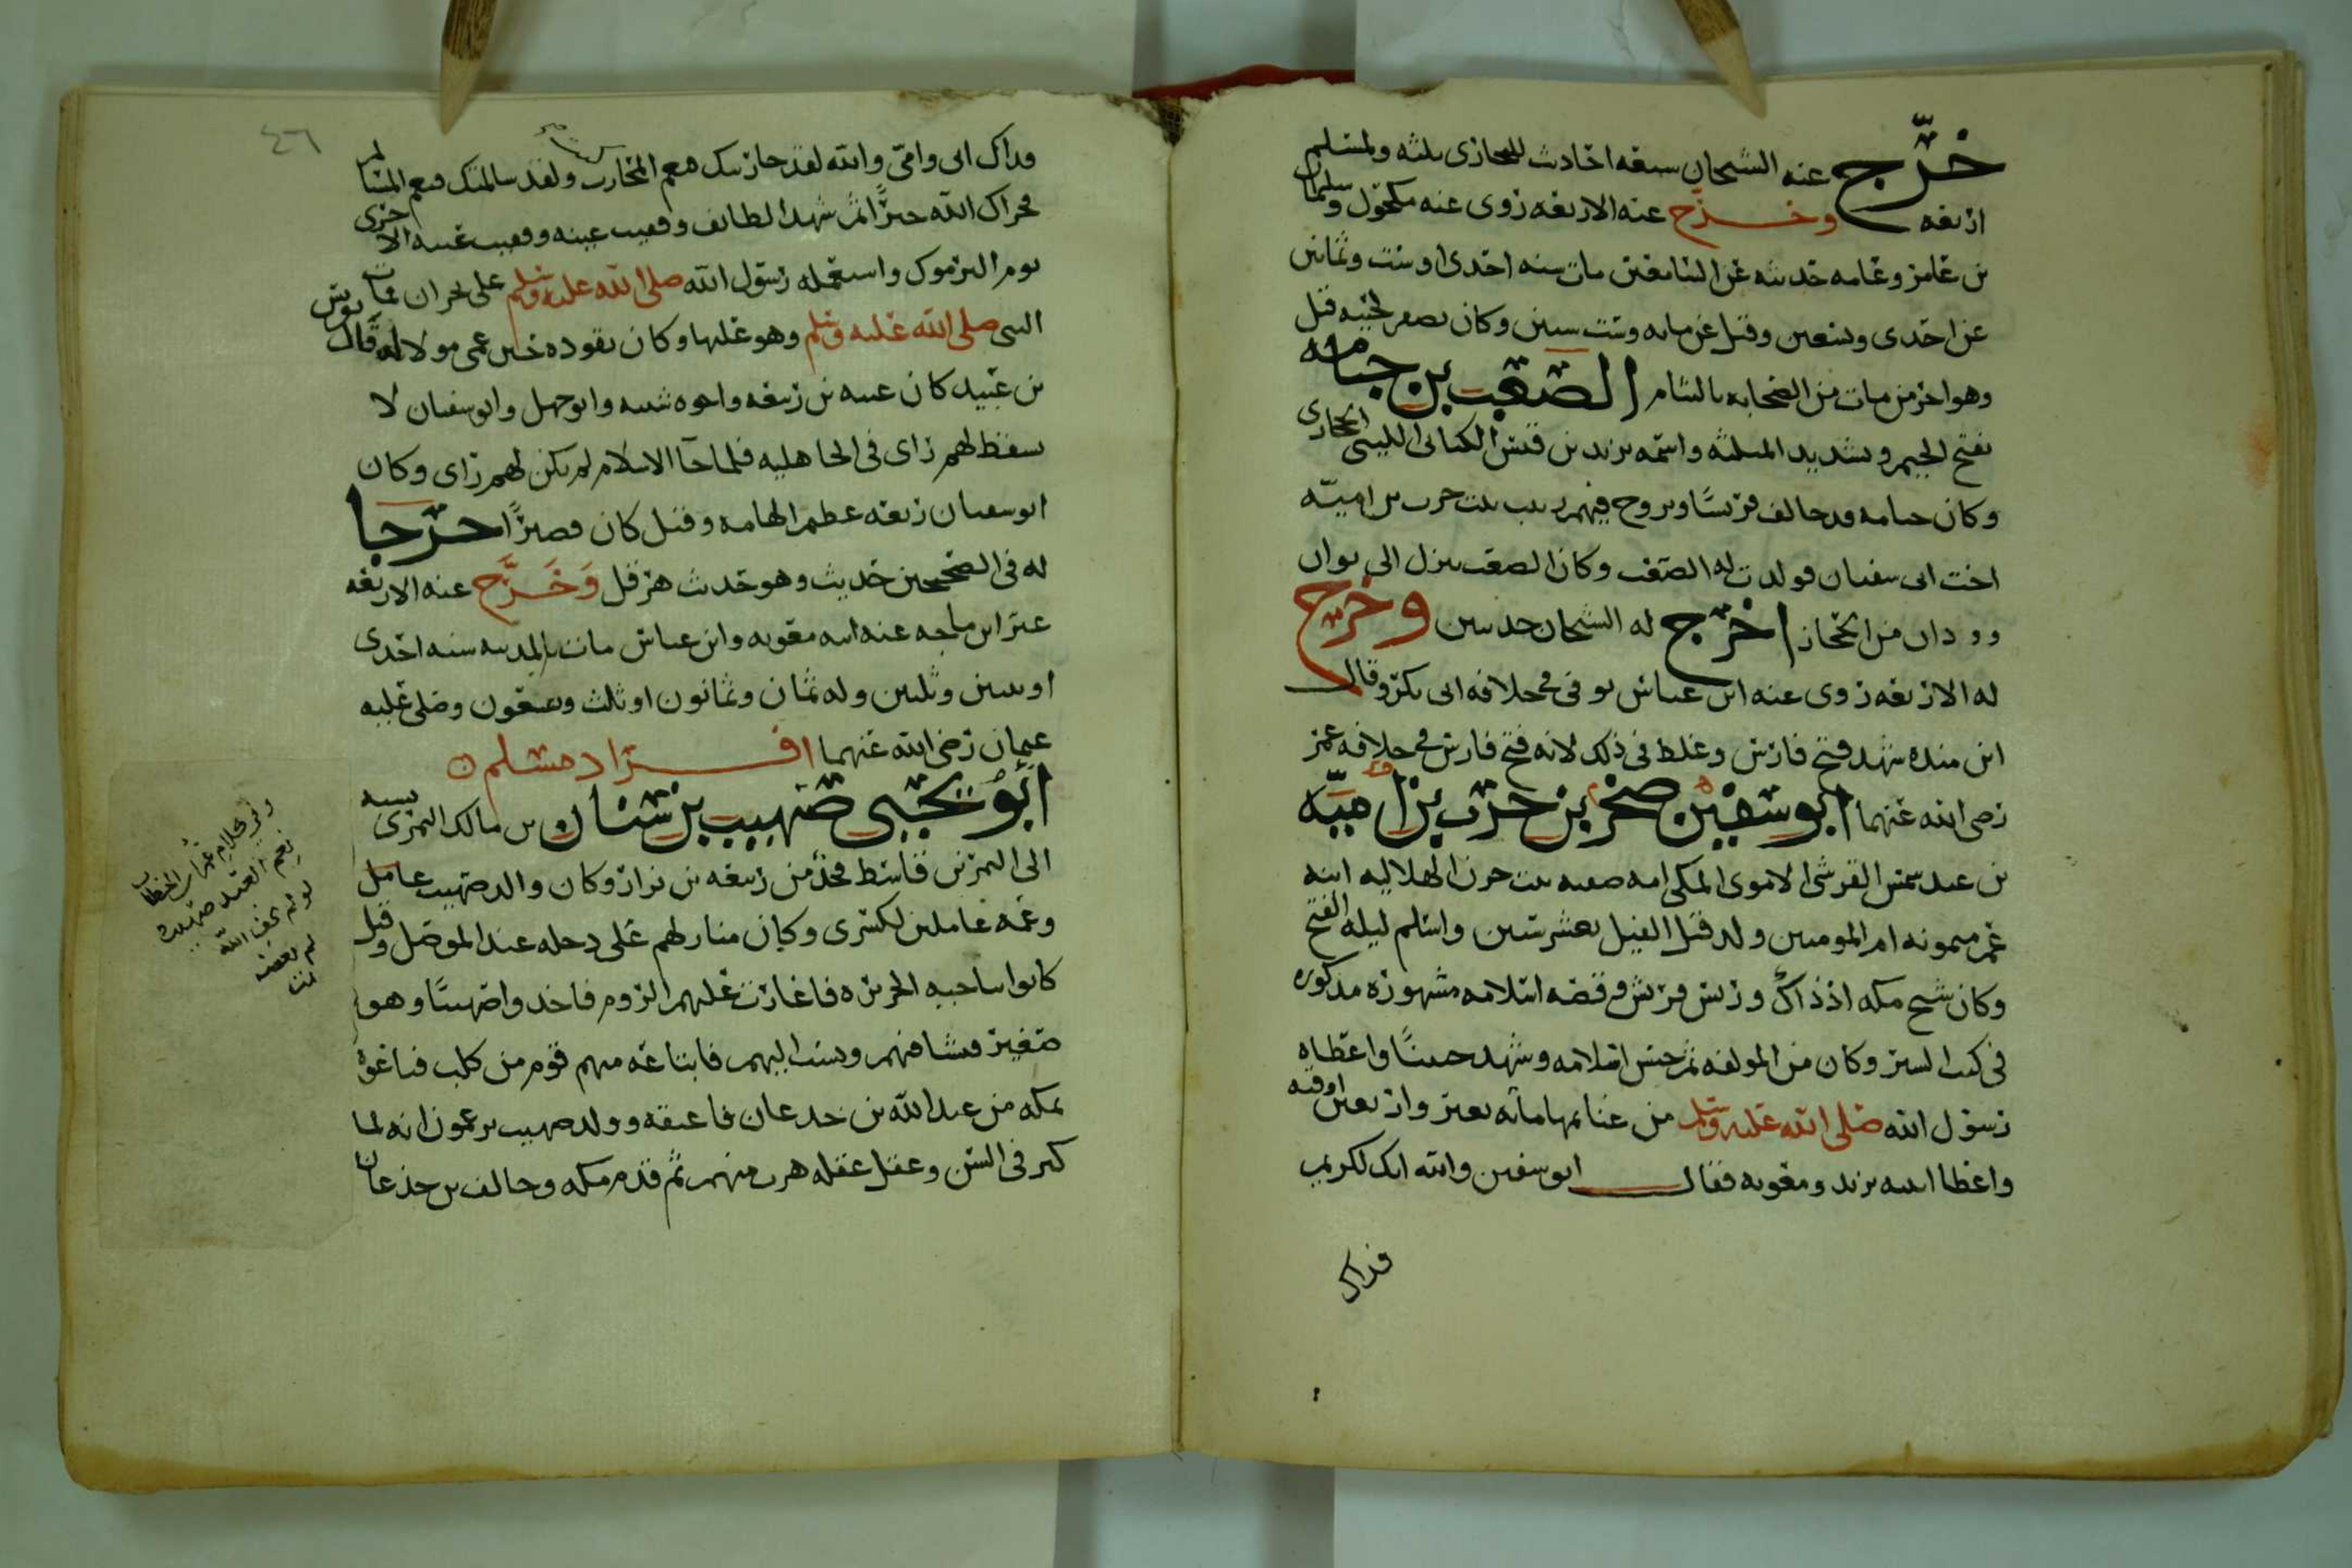 خرّج عنه الشيخان سبعه احاديث للبخاري ثلثه ولمسلم
اربعه وخرّج عنه الاربعه روى عنه مكحول وسليمان
بن عامر وعامه حديثه عن الشاميين مات سنه احدى او ست وثمانين
عن احدى وتسعين وقيل عن مايه وست سنين وكان يصفر لحيته قيل
وهو اخر من مات من الصحابه بالشام الصعب بن جثامه
بفتح الجيم وتشديد المثلثه واسمه يزيد بن قيس الكناني الليثي الحجازي
وكان جثامه قد حالف قريشا وتزوج فيهم زينب بنت حرب بن اميّه
اخت ابي سفيان فولدت له الصعب وكان الصعب ينزل الى بوان
وودان من الحجاز اخرج له الشيخان حديثين وخرج
له الاربعه روى عنه ابن عباس توفى في خلافه ابي بكر وقال
ابن منده شهد فتح فارس وغلط في ذلك لانه فتح فارس في خلافه عمر
رضي الله عنهما ابو سفين صخر بن حرب بن اميّه
بن عبد شمس القرشي الاموي المكي امه صفيه بنت حزن الهلاليه ابنه
عم ميمونه ام المومنين ولد قبل الفيل بعشر سنين واسلم ليله الفتح
وكان شيخ مكه اذ ذاك وريس قريش وقصه اسلامه مشهوره مذكوره
في كتب السير وكان من المولفه ثم حسن اسلامه وشهد حنينا واعطاه
رسول الله صلى الله عليه وسلم من غنايمها مائه بعير واربعين اوقيه
واعطا ابنيه يزيد ومعويه فقال ابو سفين والله انك لكريم
فداك
٤٦
فداك ابي وامّي والله لقد حاربتك فنعم المحارب ولقد سالمتك فنعم المسالم
فجزاك الله خيرًا ثم شهد الطائف وفقيت عينه وفقيت عينه الاخرى
يوم اليرموك واستعمله رسول الله صلى الله عليه وسلم على نجران فمات
النبي صلى الله عليه وسلم وهو عليها وكان يقوده حين عمي مولا له قال يونس
بن عبيد كان عتبه بن ربيعه واخوه شيبه وابو جهل وابو سفيان لا
يسقط لهم راي في الجاهليه فلما جآ الاسلام لم يكن لهم راي وكان
ابو سفيان ربعه عظيم الهامه وقيل كان قصيرًا خرّجا
له في الصحيحين حديث وهو حديث هرقل وَخَرَّج عنه الاربعه
غير ابن ماجه عنه ابنه معويه وابن عباس مات بالمدينه سنه احدى
او سنين وثلثين وله ثمان وثمانون او ثلث وتسعون وصلى عليه
عثمان رضي الله عنهما افراد مسلم
ابو يحيى صهيب بن سنان بن مالك النمري نسبه
الى النمر بن قاسط فخذ من ربيعه بن نزار وكان والد صهيب عامل
وعمه عاملين لكسرى وكان منازلهم على دجله عند الموصل وقيل
كانوا بناحيه الجزيره فاغارت عليهم الروم فاخذوا صهيبًا وهو
صغير فنشا فيهم ونسب اليهم فابتاعه منهم قوم من كلب فباعوه
بمكه من عبد الله بن جدعان فاعتقه وولد صهيب يزعمون انه لما
كبر في السن وعقل عقله هرب منهم ثم قدم مكه وحالف بن جدعان
ومن كلام عمر بن الخطاب
نعم العبد صهيب
لو لم يخف الله
لم يعصه